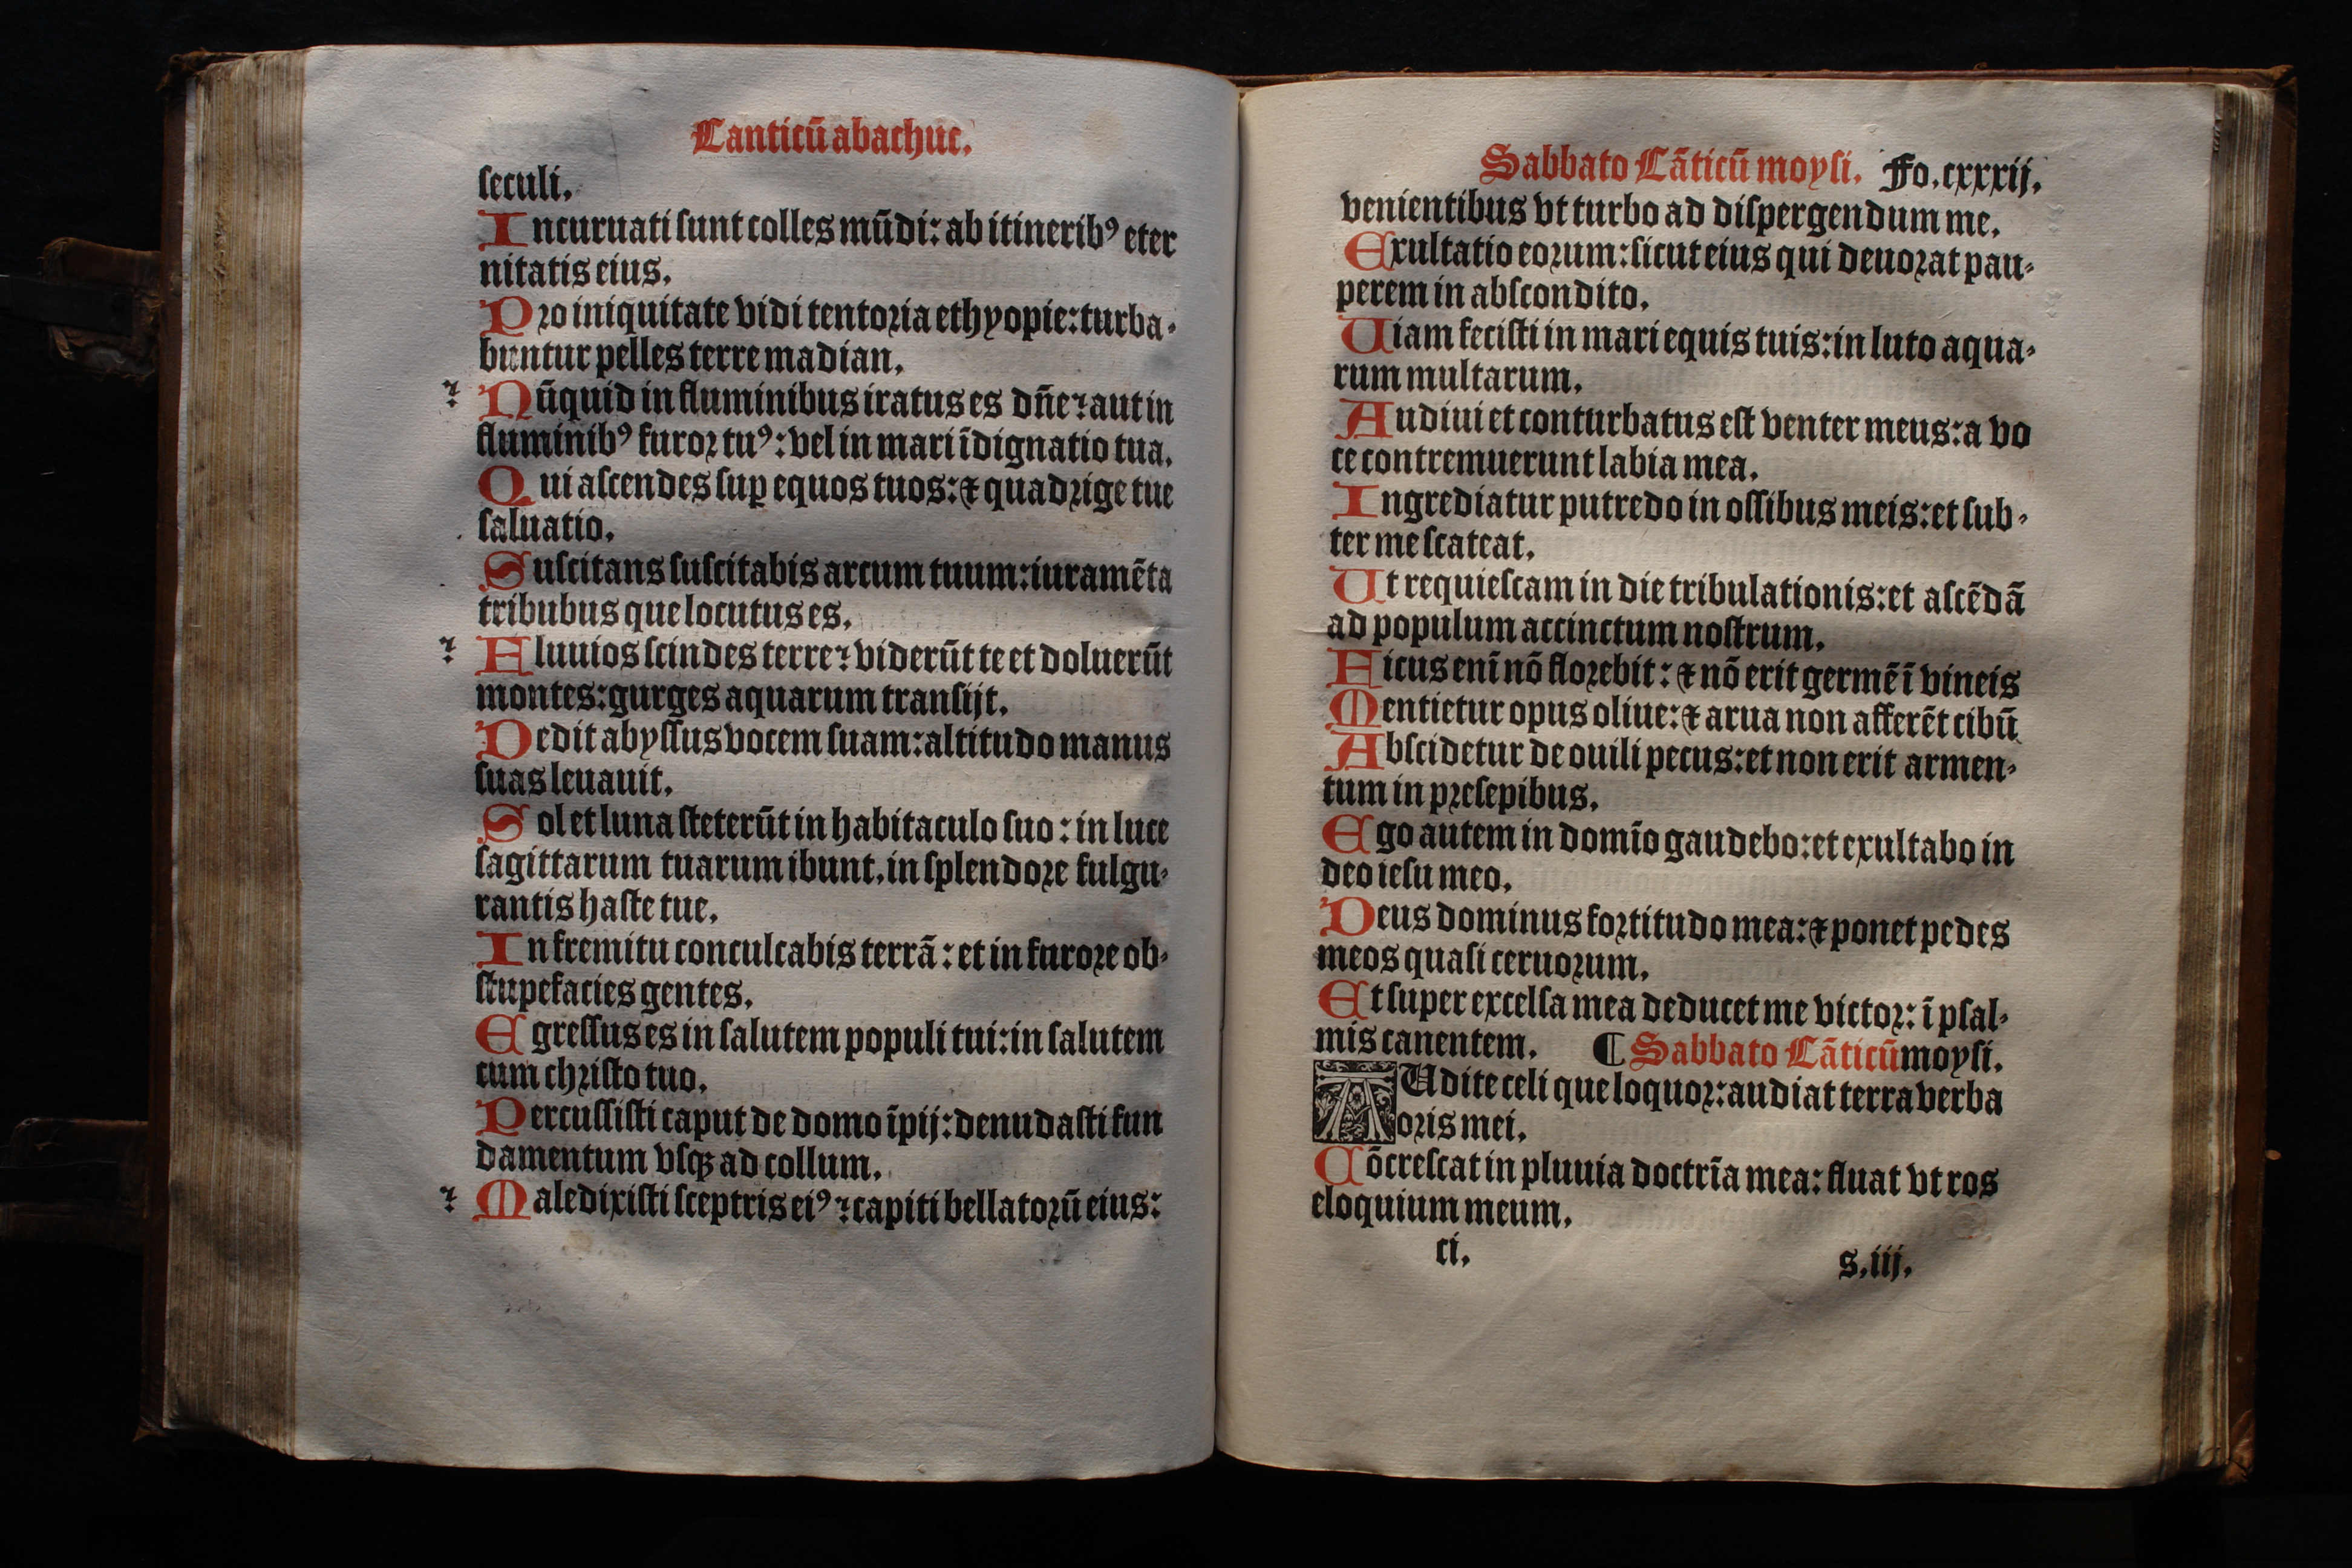 Canticū abachuc.
seculi.
Incuruati sunt colles mūdi: ab itineribꝰ eter
nitatis eius.
Pro iniquitate vidi tentoria ethyopie: turba-
buntur pelles terre madian.
? Nūquid in fluminibus iratus es dn̄e? aut in
fluminibꝰ furor tuꝰ: vel in mari īdignatio tua.
Qui ascendes suꝑ equos tuos: ⁊ quadrige tue
saluatio.
Suscitans suscitabis arcum tuum: iuramēta
tribubus que locutus es.
? Fluuios scindes terre? viderūt te et doluerūt
montes: gurges aquarum transijt.
Dedit abyssus vocem suam: altitudo manus
suas leuauit.
Sol et luna steterūt in habitaculo suo: in luce
sagittarum tuarum ibunt, in splendore fulgu-
rantis haste tue.
In fremitu conculcabis terrā: et in furore ob-
stupefacies gentes.
Egressus es in salutem populi tui: in salutem
cum christo tuo.
Percussisti caput de domo īpij: denudasti fun
damentum vsqꝫ ad collum.
? Maledixisti sceptris eiꝰ? capiti bellatorū eius:
Sabbato Cāticū moysi. Fo. cxxxij.
venientibus vt turbo ad dispergendum me.
Exultatio eorum: sicut eius qui deuorat pau-
perem in abscondito.
Uiam fecisti in mari equis tuis: in luto aqua-
rum multarum.
Audiui et conturbatus est venter meus: a vo
ce contremuerunt labia mea.
Ingrediatur putredo in ossibus meis: et sub-
ter me scateat.
Ut requiescam in die tribulationis: et ascēdā
ad populum accinctum nostrum.
Ficus enī nō florebit: ⁊ nō erit germē ī vineis
Mentietur opus oliue: ⁊ arua non afferēt cibū
Abscidetur de ouili pecus: et non erit armen-
tum in presepibus.
Ego autem in domīo gaudebo: et exultabo in
deo iesu meo.
Deus dominus fortitudo mea: ⁊ ponet pedes
meos quasi ceruorum.
Et super excelsa mea deducet me victor: ī psal-
mis canentem. ¶ Sabbato Cāticū moysi.
AUdite celi que loquor: audiat terra verba
oris mei.
Cōcrescat in pluuia doctrīa mea: fluat vt ros
eloquium meum.
ci. s.iij.